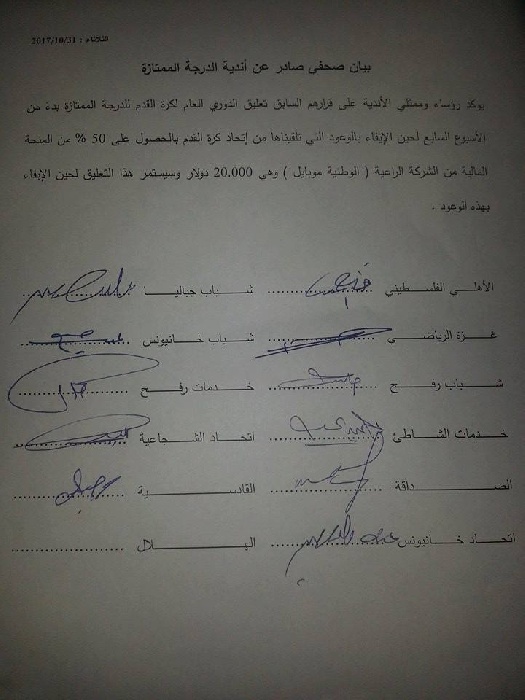 الثلاثاء : 2017/10/31
بيان صحفي صادر عن أندية الدرجة الممتازة
يؤكد رؤساء وممثلي الأندية على قرارهم السابق تعليق الدوري العام لكرة القدم للدرجة الممتازة بدءً من
الاسبوع السابع لحين الإيفاء بالوعود التي تلقيناها من إتحاد كرة القدم بالحصول على 50 % من المنحة
المالية من الشركة الراعية ( الوطنية موبايل ) وهي 20.000 دولار وسيستمر هذا التعليق لحين الإيفاء
بهذه الوعود .
الأهلي الفلسطيني .................... شباب جباليا ....................
غزة الرياضي .................... شباب خانيونس ....................
شباب رفح .................... خدمات رفح ....................
خدمات الشاطئ .................... اتحاد الشجاعية ....................
الصداقة .................... القادسية ....................
اتحاد خانيونس .................... الهلال ....................